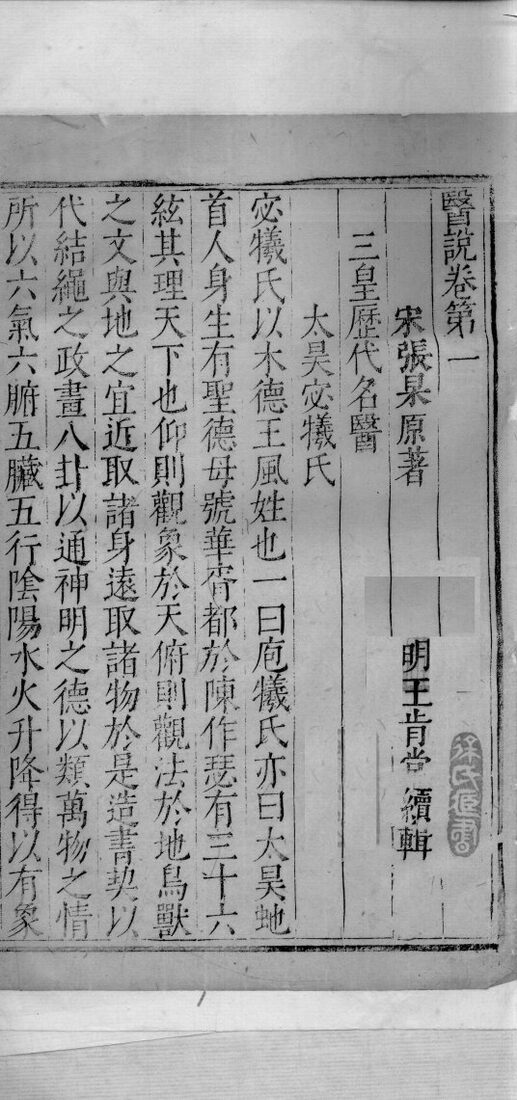 醫說卷第一
宋張杲原著 明王肯堂續輯
三皇歷代名醫
太昊宓犧氏
宓犧氏以木德王風姓也一曰庖犧氏亦曰太昊虵
首人身生有聖德母號華胥都於陳作瑟有三十六
絃其理天下也仰則觀象於天俯則觀法於地鳥獸
之文與地之宜近取諸身遠取諸物於是造書契以
代結繩之政畫八卦以通神明之德以類萬物之情
所以六氣六腑五臟五行陰陽水火升降得以有象